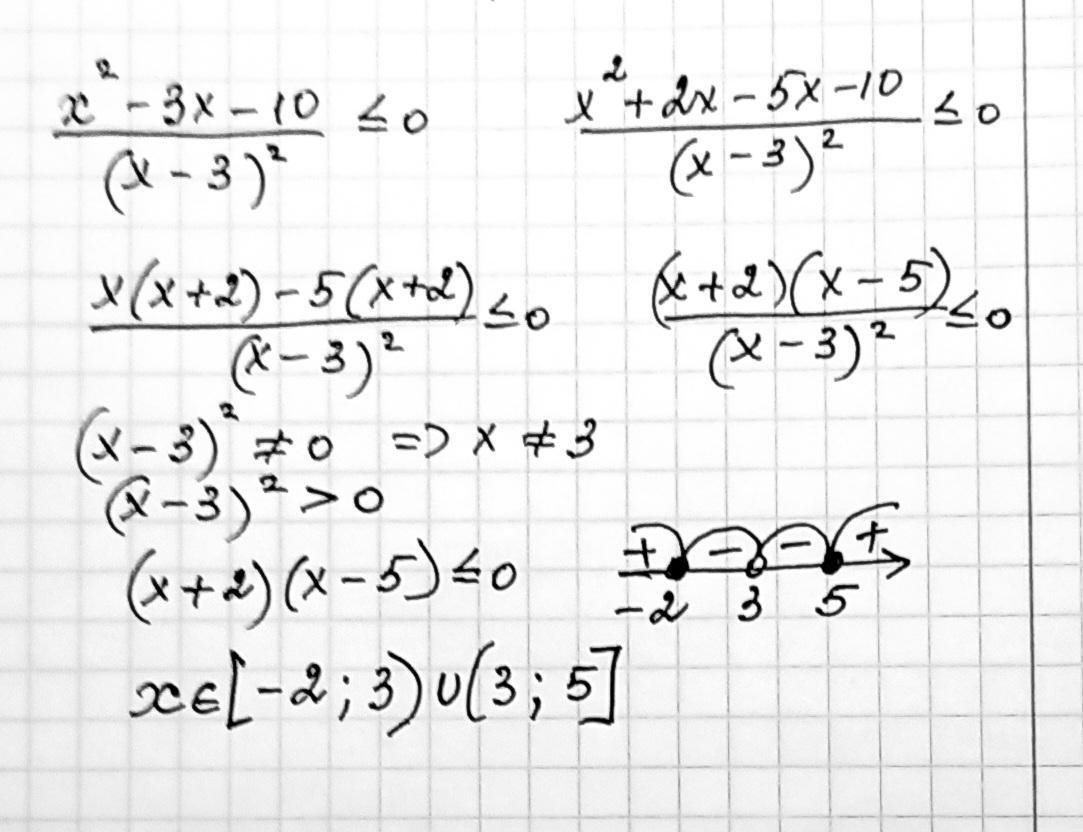 (x² - 3x - 10)/(x - 3)² ≤ 0    (x² + 2x - 5x - 10)/(x - 3)² ≤ 0
(x(x+2) - 5(x+2))/(x - 3)² ≤ 0    ((x+2)(x - 5))/(x - 3)² ≤ 0
(x - 3)² ≠ 0 => x ≠ 3
(x - 3)² > 0
(x+2)(x - 5) ≤ 0    + - - +
-2 3 5
x ∈ [-2; 3) ∪ (3; 5]